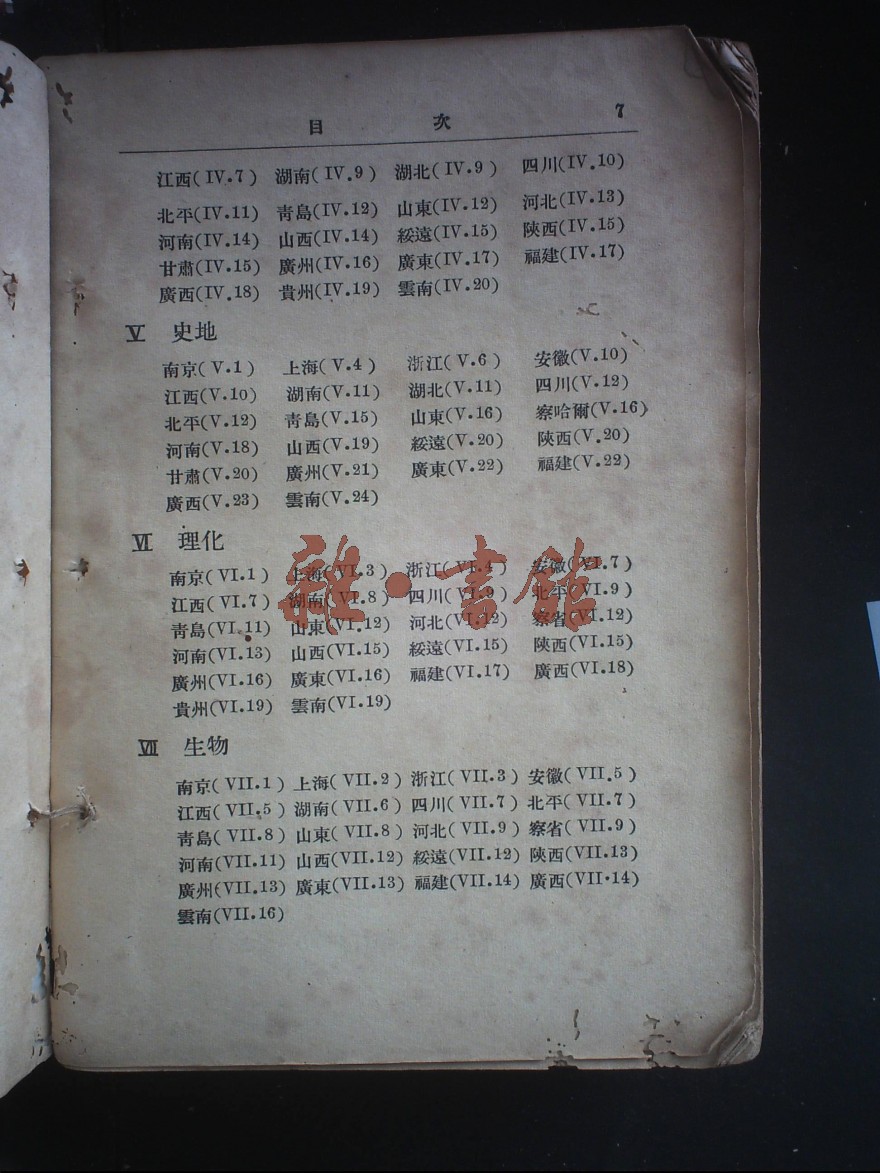 目 次 7
江西(IV.7) 湖南(IV.9) 湖北(IV.9) 四川(IV.10)
北平(IV.11) 青島(IV.12) 山東(IV.12) 河北(IV.13)
河南(IV.14) 山西(IV.14) 綏遠(IV.15) 陝西(IV.15)
甘肅(IV.15) 廣州(IV.16) 廣東(IV.17) 福建(IV.17)
廣西(IV.18) 貴州(IV.19) 雲南(IV.20)
V 史地
南京(V.1) 上海(V.4) 浙江(V.6) 安徽(V.10)
江西(V.10) 湖南(V.11) 湖北(V.11) 四川(V.12)
北平(V.12) 青島(V.15) 山東(V.16) 察哈爾(V.16)
河南(V.18) 山西(V.19) 綏遠(V.20) 陝西(V.20)
甘肅(V.20) 廣州(V.21) 廣東(V.22) 福建(V.22)
廣西(V.23) 雲南(V.24)
VI 理化
南京(VI.1) 上海(VI.3) 浙江(VI.4) 安徽(VI.7)
江西(VI.7) 湖南(VI.8) 四川(VI.9) 北平(VI.9)
青島(VI.11) 山東(VI.12) 河北(VI.12) 察省(VI.12)
河南(VI.13) 山西(VI.15) 綏遠(VI.15) 陝西(VI.15)
廣州(VI.16) 廣東(VI.16) 福建(VI.17) 廣西(VI.18)
貴州(VI.19) 雲南(VI.19)
雜·書館
VII 生物
南京(VII.1) 上海(VII.2) 浙江(VII.3) 安徽(VII.5)
江西(VII.5) 湖南(VII.6) 四川(VII.7) 北平(VII.7)
青島(VII.8) 山東(VII.8) 河北(VII.9) 察省(VII.9)
河南(VII.11) 山西(VII.12) 綏遠(VII.12) 陝西(VII.13)
廣州(VII.13) 廣東(VII.13) 福建(VII.14) 廣西(VII·14)
雲南(VII.16)